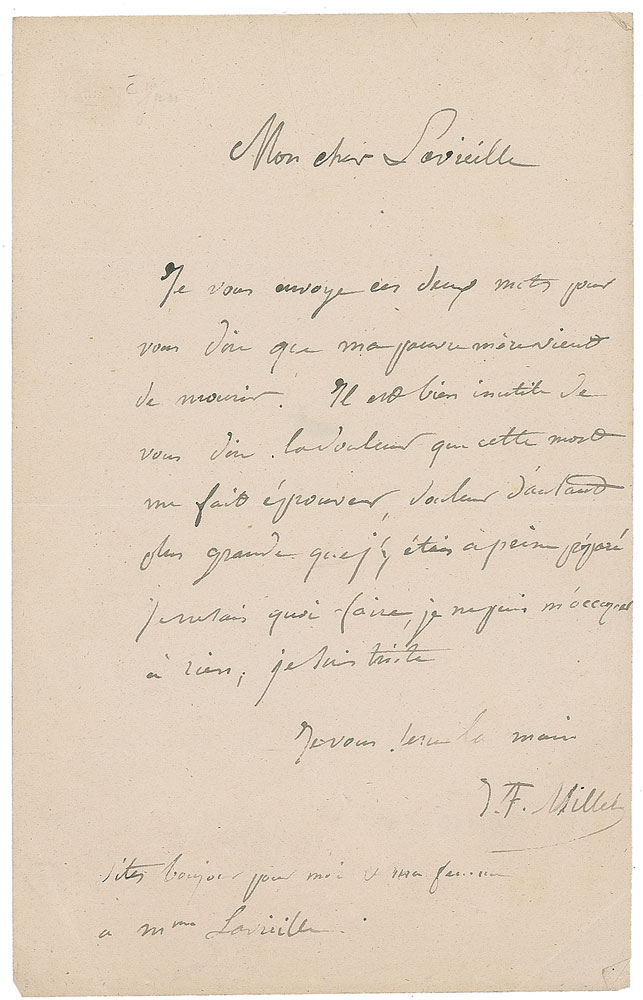 Mon cher Lavieille
Je vous envoye ces deux mots pour
vous dire que ma pauvre mère vient
de mourir. Il est bien inutile de
vous dire la douleur que cette mort
me fait éprouver, douleur d'autant
plus grande que j'y étais à peine préparé
je ne sais quoi faire, je ne puis m'occuper
à rien, je suis triste
Je vous serre la main
J. F. Millet
dites bonjour pour moi et ma femme
à Mme Lavieille.